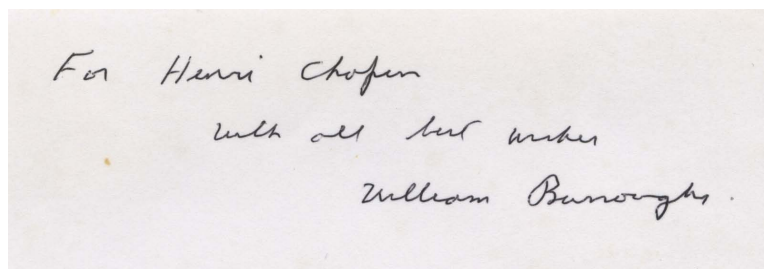 For Henri Chopin
with all best wishes
William Burroughs.